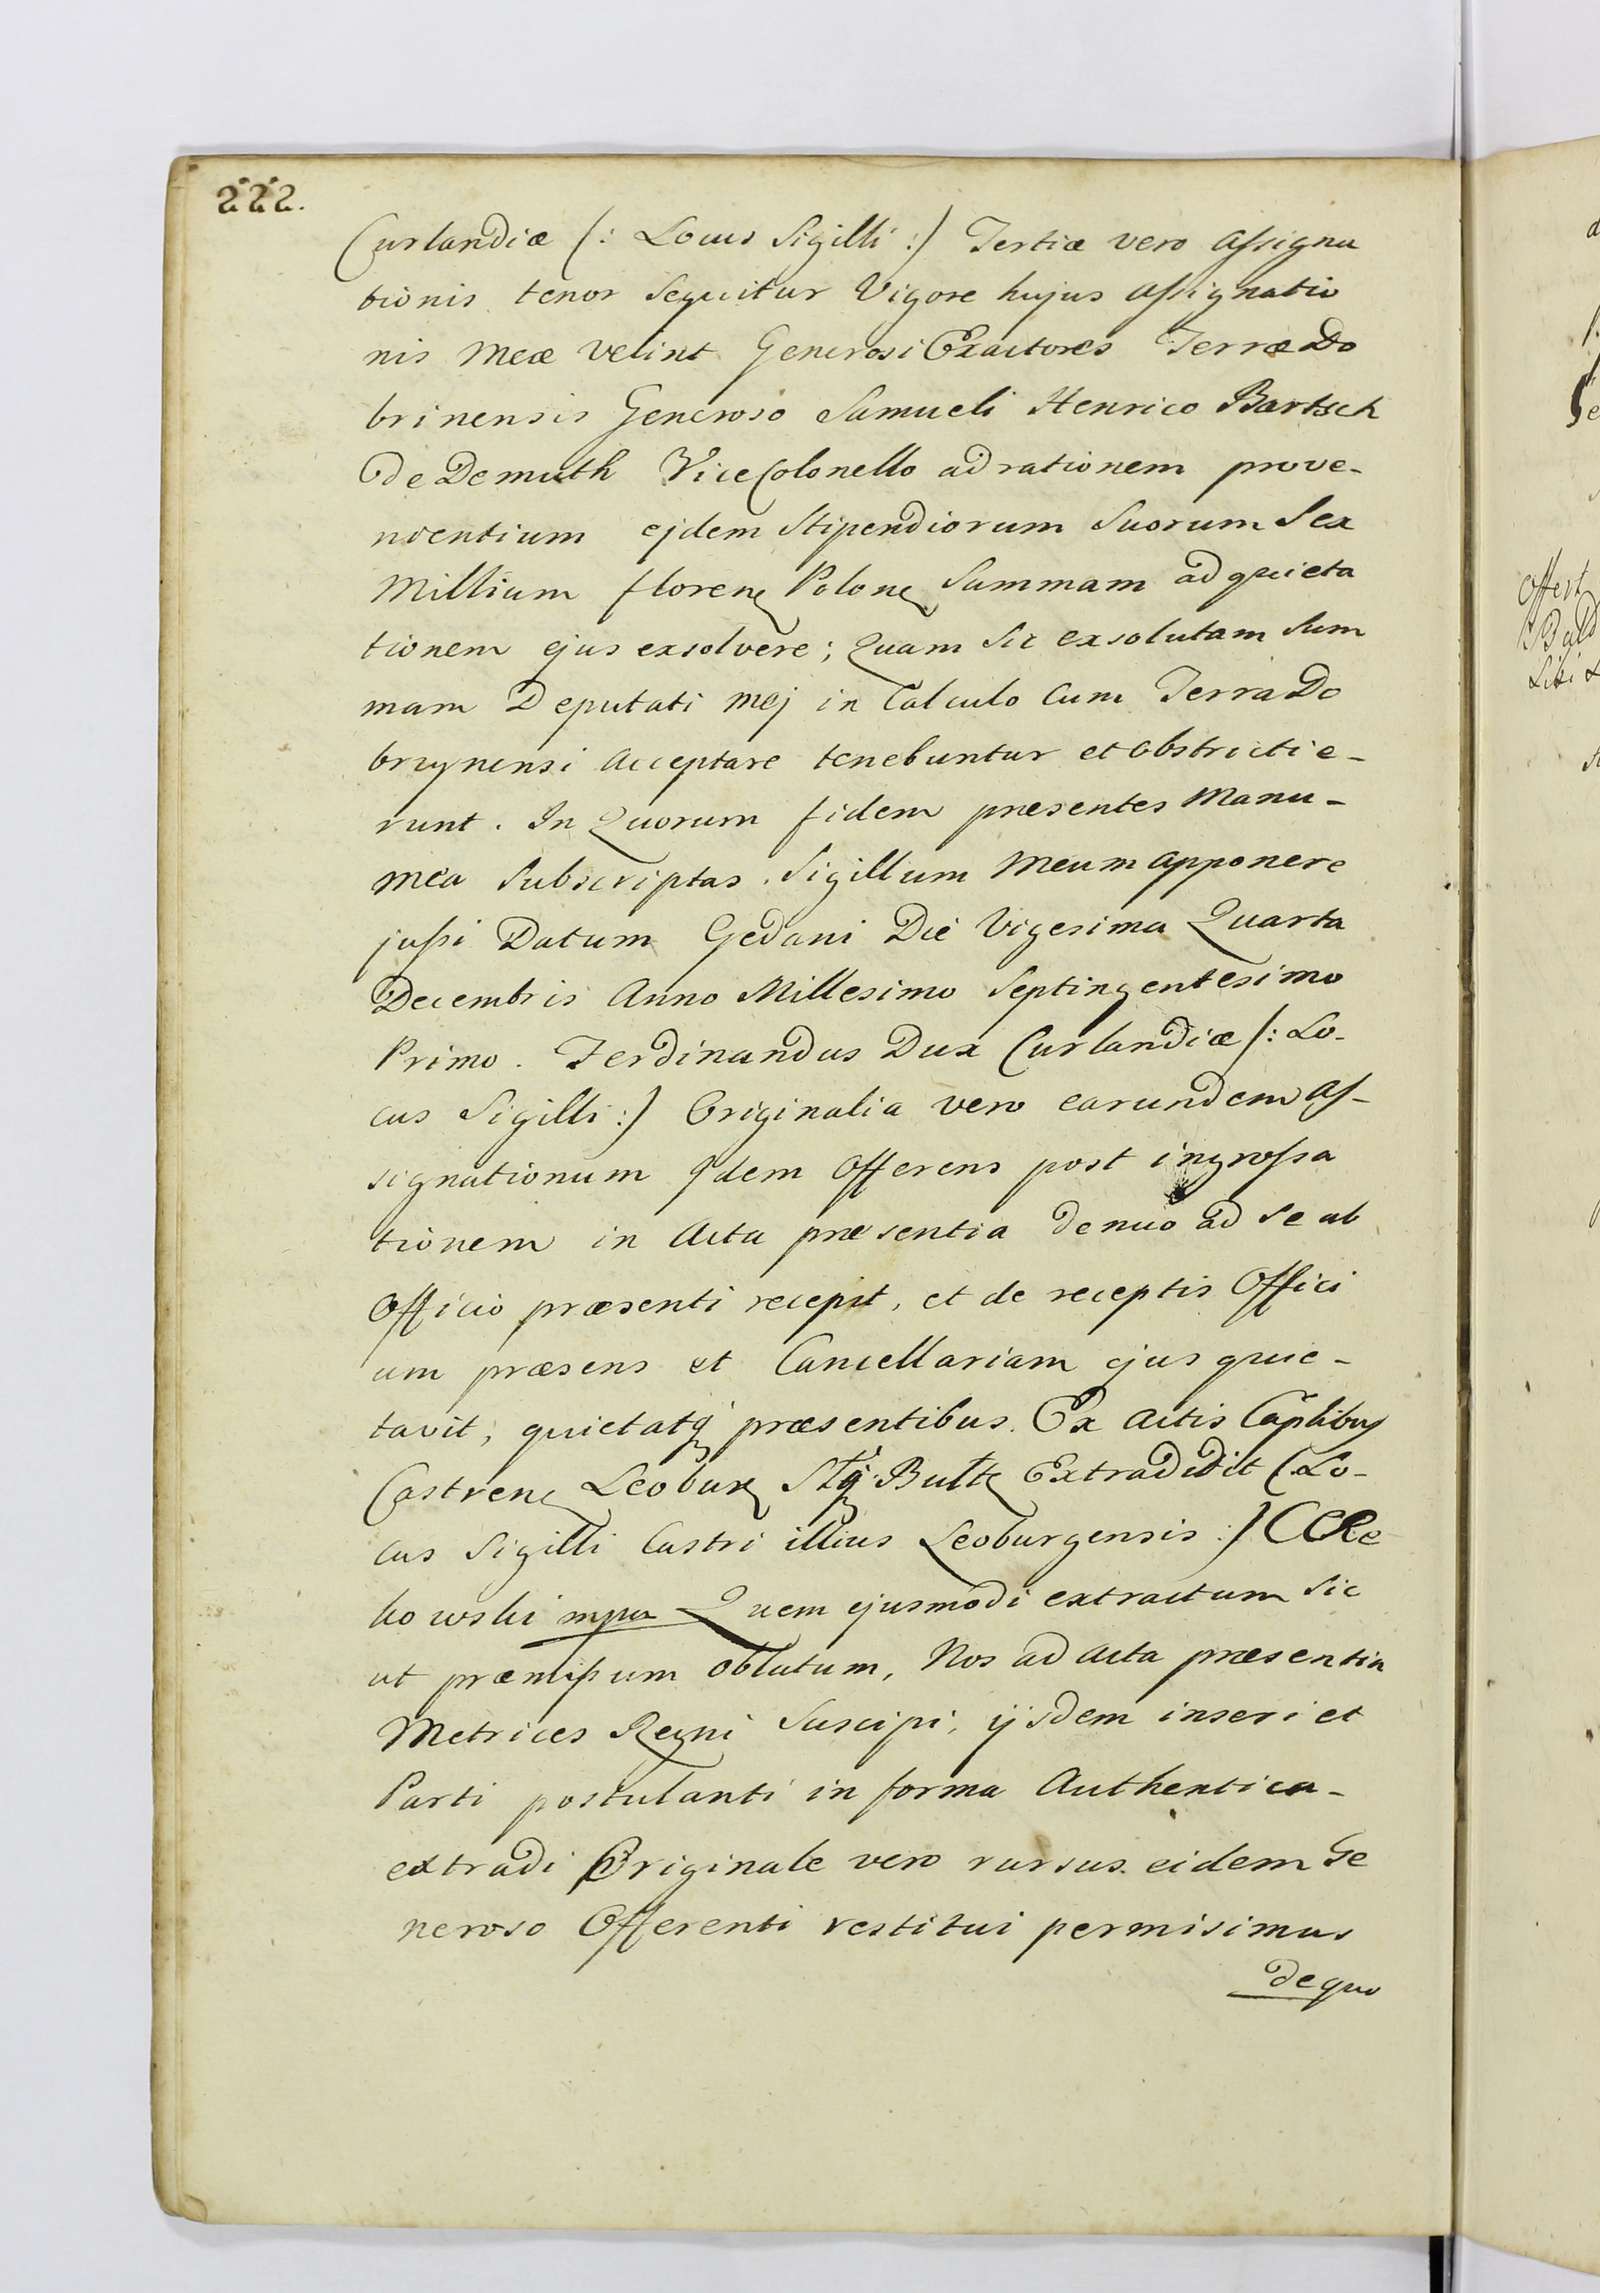 222.
Curlandiæ (: Locus Sigilli :) Tertiæ vero assigna
tionis tenor sequitur Vigore hujus assignatio
nis meæ velint Generosi Exactores Terræ Do
brinensis Generoso Samueli Henrico Bartsch
de Demuth ViceColonello ad rationem prove-
nientium ejdem Stipendiorum Suorum Sex
Millium floren Polon Summam ad quieta
tionem ejus exsolvere; Quam sic exsolutam Sum
mam Deputati mej in Calculo cum Terra Do
brzynensi acceptare tenebuntur et obstricti e-
runt. In Quorum fidem præsentes Manu-
mea Subscriptas Sigillum Meum apponere
jussi Datum Gedani Die Vigesima Quarta
Decembris Anno Millesimo Septingentesimo
Primo. Ferdinandus Dux Curlandiæ (: Lo-
cus Sigilli :) Originalia vero earundem as-
signationum Idem Offerens post ingrossa
tionem in Acta præsentia denuo ad se ab
Officio præsenti recepit, et de receptis Offici
um præsens et Cancellariam ejus quie-
tavit, quietatq præsentibus. Ex Actis Caplibus
Castren Leobur Extradidit (Lo-
cus Sigilli Castri illius Leoburgensis :)
kowski mpa Quem ejusmodi extractum sic
ut præmissum oblatum, Nos ad Acta præsentia
Metrices Regni Suscipi, ijsdem inseri et
Parti postulanti in forma Authentica-
extradi Originale vero rursus eidem Ge
neroso Offerenti restitui permisimus
de quo
Offert